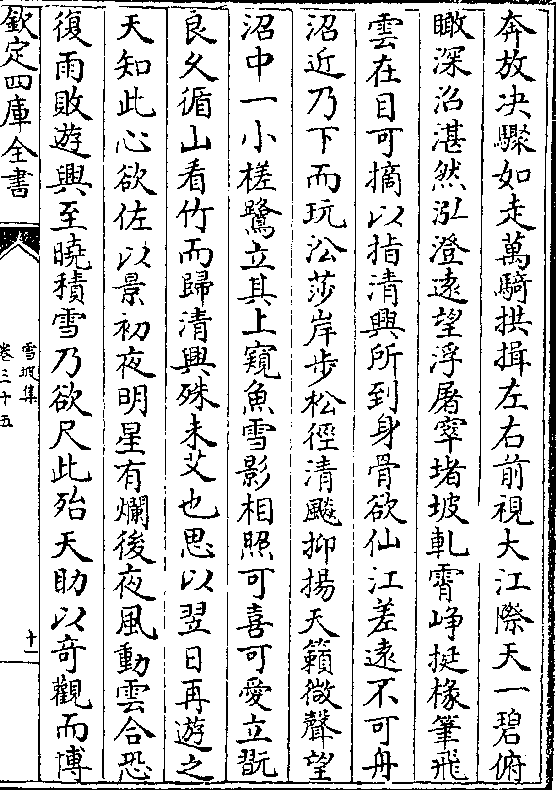 奔放决驟如走萬騎拱揖左右前視大江際天一碧俯
瞰深沿湛然泓澄逺望浮屠窣堵坡軋霄峥挺椽筆飛
雲在目可摘以指清興所到身骨欲仙江差逺不可舟
沼近乃下而玩沿莎岸步松徑清飈抑揚天籟微聲望
沼中一小槎鷺立其上窺魚雪影相照可喜可愛立翫
良久循山看竹而歸清興殊未艾也思以翌日再遊之
天知此心欲佐以景初夜明星有爛後夜風動雲合恐
復雨敗遊興至曉積雪乃欲尺此殆天助以竒觀而博
欽定四庫全書
雪坡集
卷三十五
十一